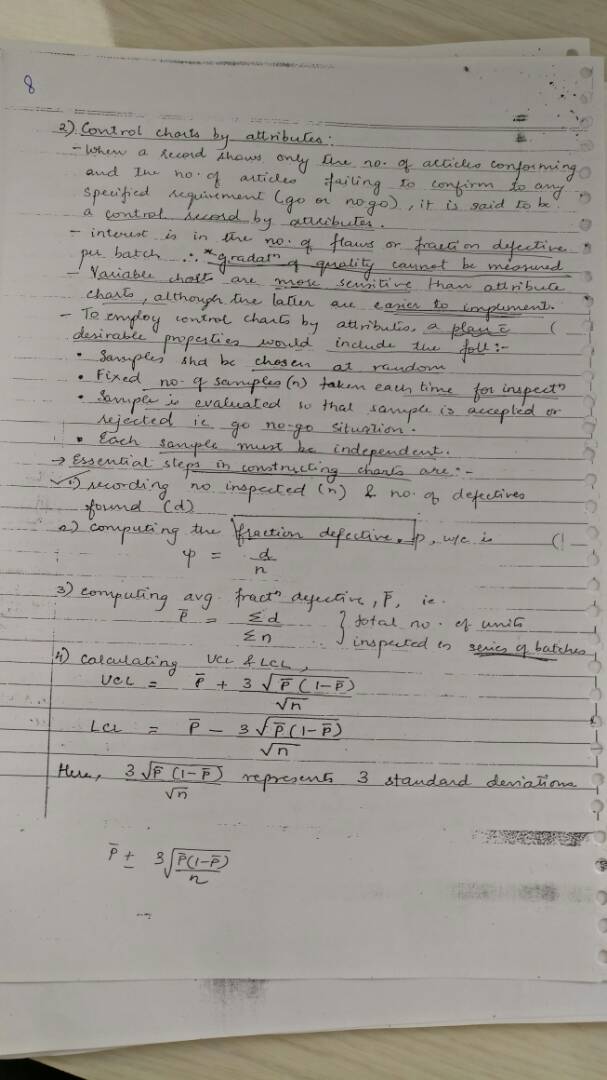 8
2) Control charts by attributes:
- When a record shows only the no. of articles conforming
and the no. of articles failing to confirm to any
specified requirement (go or nogo), it is said to be
a control record by attributes.
- interest is in the no. of flaws or fraction defective
per batch ∴ * gradatⁿ of quality cannot be measured
- Variable charts are more sensitive than attribute
charts, although the latter are easier to implement.
- To employ control charts by attributes, a plan c̄
desirable properties would include the foll:-
• Samples shd be chosen at random
• Fixed no. of samples (n) taken each time for inspectⁿ
• Sample is evaluated so that sample is accepted or
rejected ie go no-go situation.
• Each sample must be independent.
→ Essential steps in constructing charts are:-
1) recording no. inspected (n) & no. of defectives
found (d)
2) computing the fraction defective, p, w/c is
p = d/n
3) computing avg. fractⁿ defective, p̄, ie.
p̄ = Σd/Σn } total no. of units
inspected in series of batches
4) Calculating UCL & LCL,
UCL = p̄ + 3√p̄(1-p̄)/√n
LCL = p̄ - 3√p̄(1-p̄)/√n
Here, 3√p̄(1-p̄)/√n represents 3 standard deviations
p̄ ± 3√p̄(1-p̄)/n